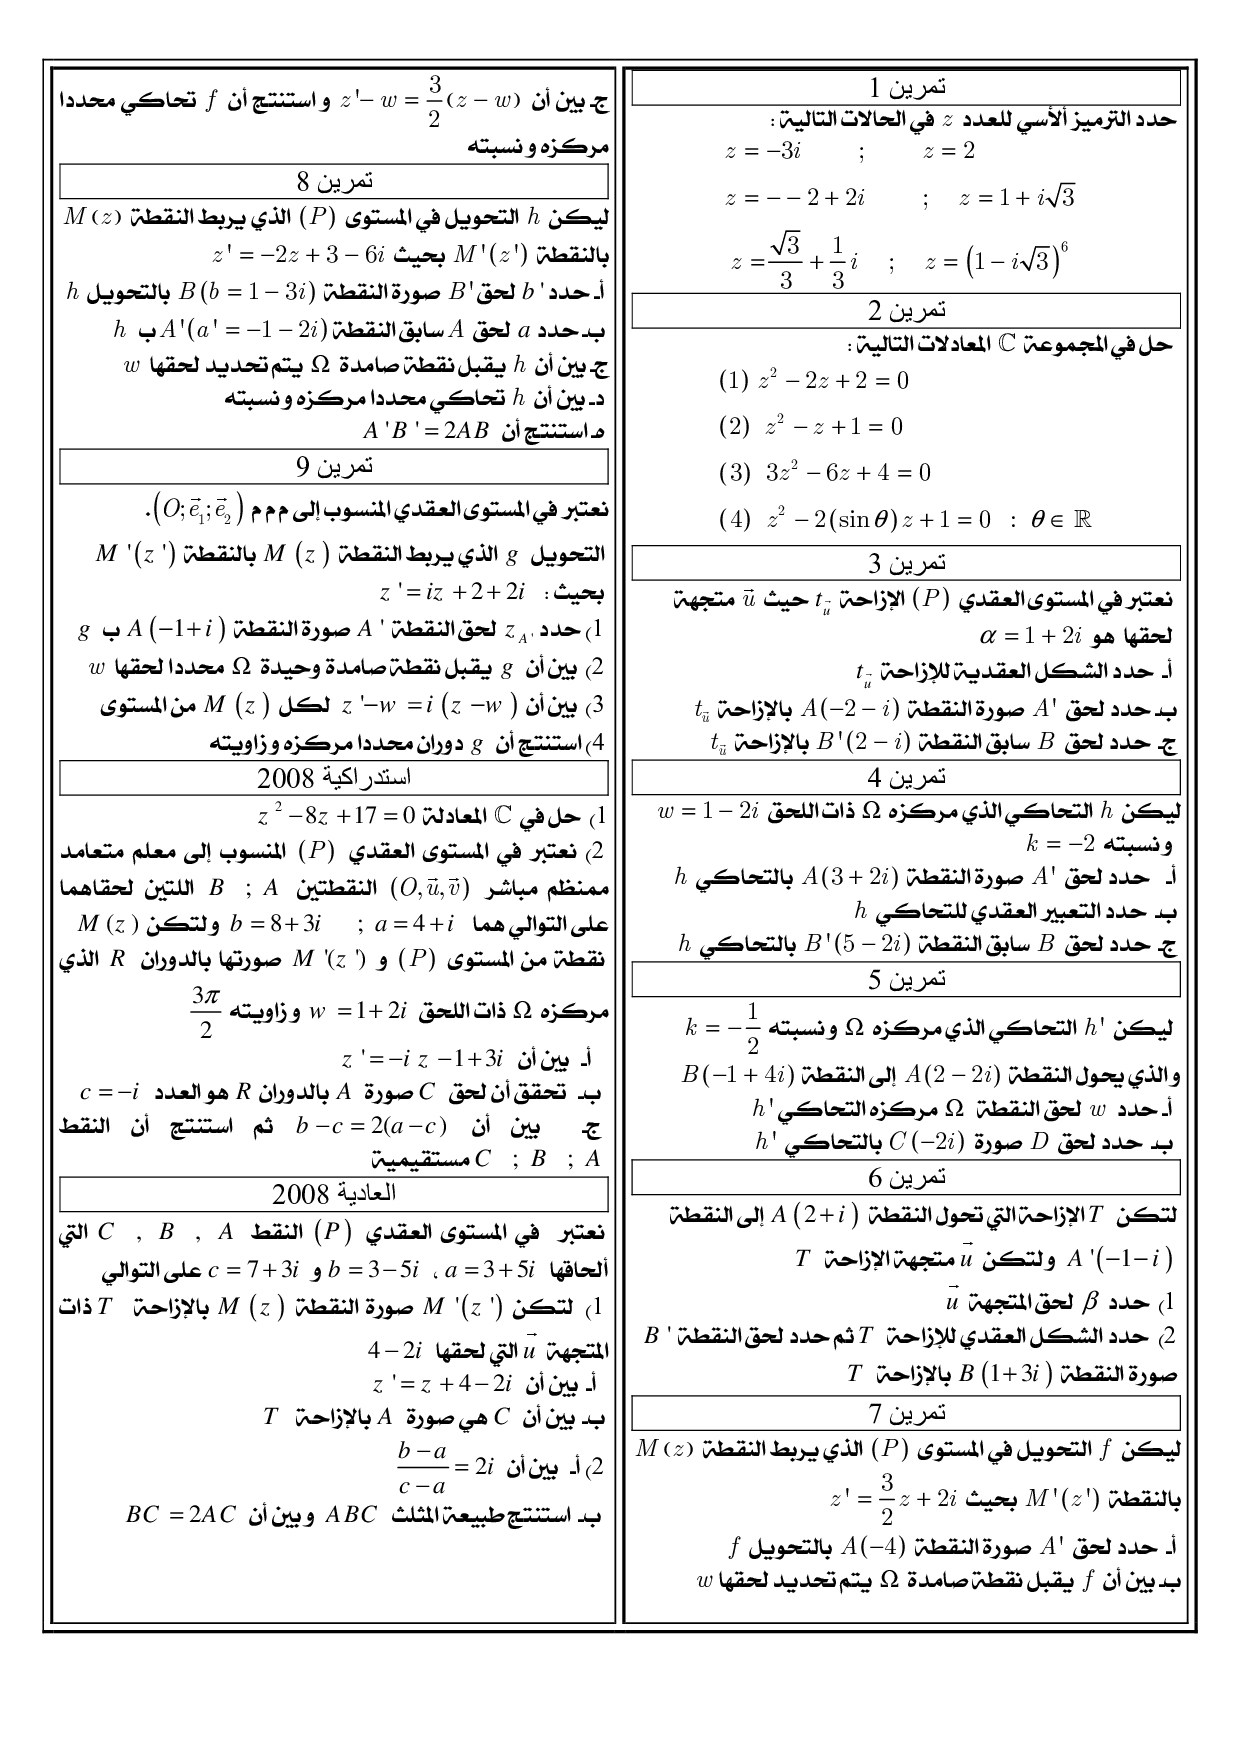 تمرين 1
حدد الترميز ألأسي للعدد z في الحالات التالية :
z = −3i ; z = 2
z = − − 2 + 2i ; z = 1 + i√3
z = √3/3 + 1/3 i ; z = (1 − i√3)^6
تمرين 2
حل في المجموعة ℂ المعادلات التالية :
(1) z² − 2z + 2 = 0
(2) z² − z + 1 = 0
(3) 3z² − 6z + 4 = 0
(4) z² − 2(sin θ)z + 1 = 0 : θ ∈ ℝ
تمرين 3
نعتبر في المستوى العقدي (P) الإزاحة t_u⃗ حيث u⃗ متجهة
لحقها هو α = 1 + 2i
أـ حدد الشكل العقدية للإزاحة t_u⃗
بـ حدد لحق A' صورة النقطة A(−2 − i) بالإزاحة t_u⃗
جـ حدد لحق B سابق النقطة B'(2 − i) بالإزاحة t_u⃗
تمرين 4
ليكن h التحاكي الذي مركزه Ω ذات اللحق w = 1 − 2i
ونسبته k = −2
أـ حدد لحق A' صورة النقطة A(3 + 2i) بالتحاكي h
بـ حدد التعبير العقدي للتحاكي h
جـ حدد لحق B سابق النقطة B'(5 − 2i) بالتحاكي h
تمرين 5
ليكن h' التحاكي الذي مركزه Ω ونسبته k = −1/2
والذي يحول النقطة A(2 − 2i) إلى النقطة B(−1 + 4i)
أـ حدد w لحق النقطة Ω مركزه التحاكي h'
بـ حدد لحق D صورة C(−2i) بالتحاكي h'
تمرين 6
لتكن T الإزاحة التي تحول النقطة A(2+i) إلى النقطة
A'(−1−i) ولتكن u⃗ متجهة الإزاحة T
1) حدد β لحق المتجهة u⃗
2) حدد الشكل العقدي للإزاحة T ثم حدد لحق النقطة B'
صورة النقطة B(1+3i) بالإزاحة T
تمرين 7
ليكن f التحويل في المستوى (P) الذي يربط النقطة M(z)
بالنقطة M'(z') بحيث z' = 3/2 z + 2i
أـ حدد لحق A' صورة النقطة A(−4) بالتحويل f
بـ بين أن f يقبل نقطة صامدة Ω يتم تحديد لحقها w
جـ بين أن z' − w = 3/2 (z − w) و استنتج أن f تحاكي محددا
مركزه و نسبته
تمرين 8
ليكن h التحويل في المستوى (P) الذي يربط النقطة M(z)
بالنقطة M'(z') بحيث z' = −2z + 3 − 6i
أـ حدد b' لحق B' صورة النقطة B(b = 1 − 3i) بالتحويل h
بـ حدد a لحق A سابق النقطة A'(a' = −1 − 2i) ب h
جـ بين أن h يقبل نقطة صامدة Ω يتم تحديد لحقها w
دـ بين أن h تحاكي محددا مركزه ونسبته
هـ استنتج أن A'B' = 2AB
تمرين 9
نعتبر في المستوى العقدي المنسوب إلى م م م (O; e⃗₁; e⃗₂).
التحويل g الذي يربط النقطة M(z) بالنقطة M'(z')
بحيث : z' = iz + 2 + 2i
1) حدد z_A' لحق النقطة A' صورة النقطة A(−1+i) ب g
2) بين أن g يقبل نقطة صامدة وحيدة Ω محددا لحقها w
3) بين أن z' − w = i(z − w) لكل M(z) من المستوى
4) استنتج أن g دوران محددا مركزه وزاويته
استدراكية 2008
1) حل في ℂ المعادلة z² − 8z + 17 = 0
2) نعتبر في المستوى العقدي (P) المنسوب إلى معلم متعامد
ممنظم مباشر (O, u⃗, v⃗) النقطتين A ; B اللتين لحقاهما
على التوالي هما a = 4 + i ; b = 8 + 3i ولتكن M(z)
نقطة من المستوى (P) و M'(z') صورتها بالدوران R الذي
مركزه Ω ذات اللحق w = 1 + 2i وزاويته 3π/2
أـ بين أن z' = −i z − 1 + 3i
بـ تحقق أن لحق C صورة A بالدوران R هو العدد c = −i
جـ بين أن b − c = 2(a − c) ثم استنتج أن النقط
A ; B ; C مستقيمية
العادية 2008
نعتبر في المستوى العقدي (P) النقط A , B , C التي
ألحاقها a = 3 + 5i ، b = 3 − 5i و c = 7 + 3i على التوالي
1) لتكن M'(z') صورة النقطة M(z) بالإزاحة T ذات
المتجهة u⃗ التي لحقها 4 − 2i
أـ بين أن z' = z + 4 − 2i
بـ بين أن C هي صورة A بالإزاحة T
2) أـ بين أن (b − a)/(c − a) = 2i
بـ استنتج طبيعة المثلث ABC وبين أن BC = 2AC